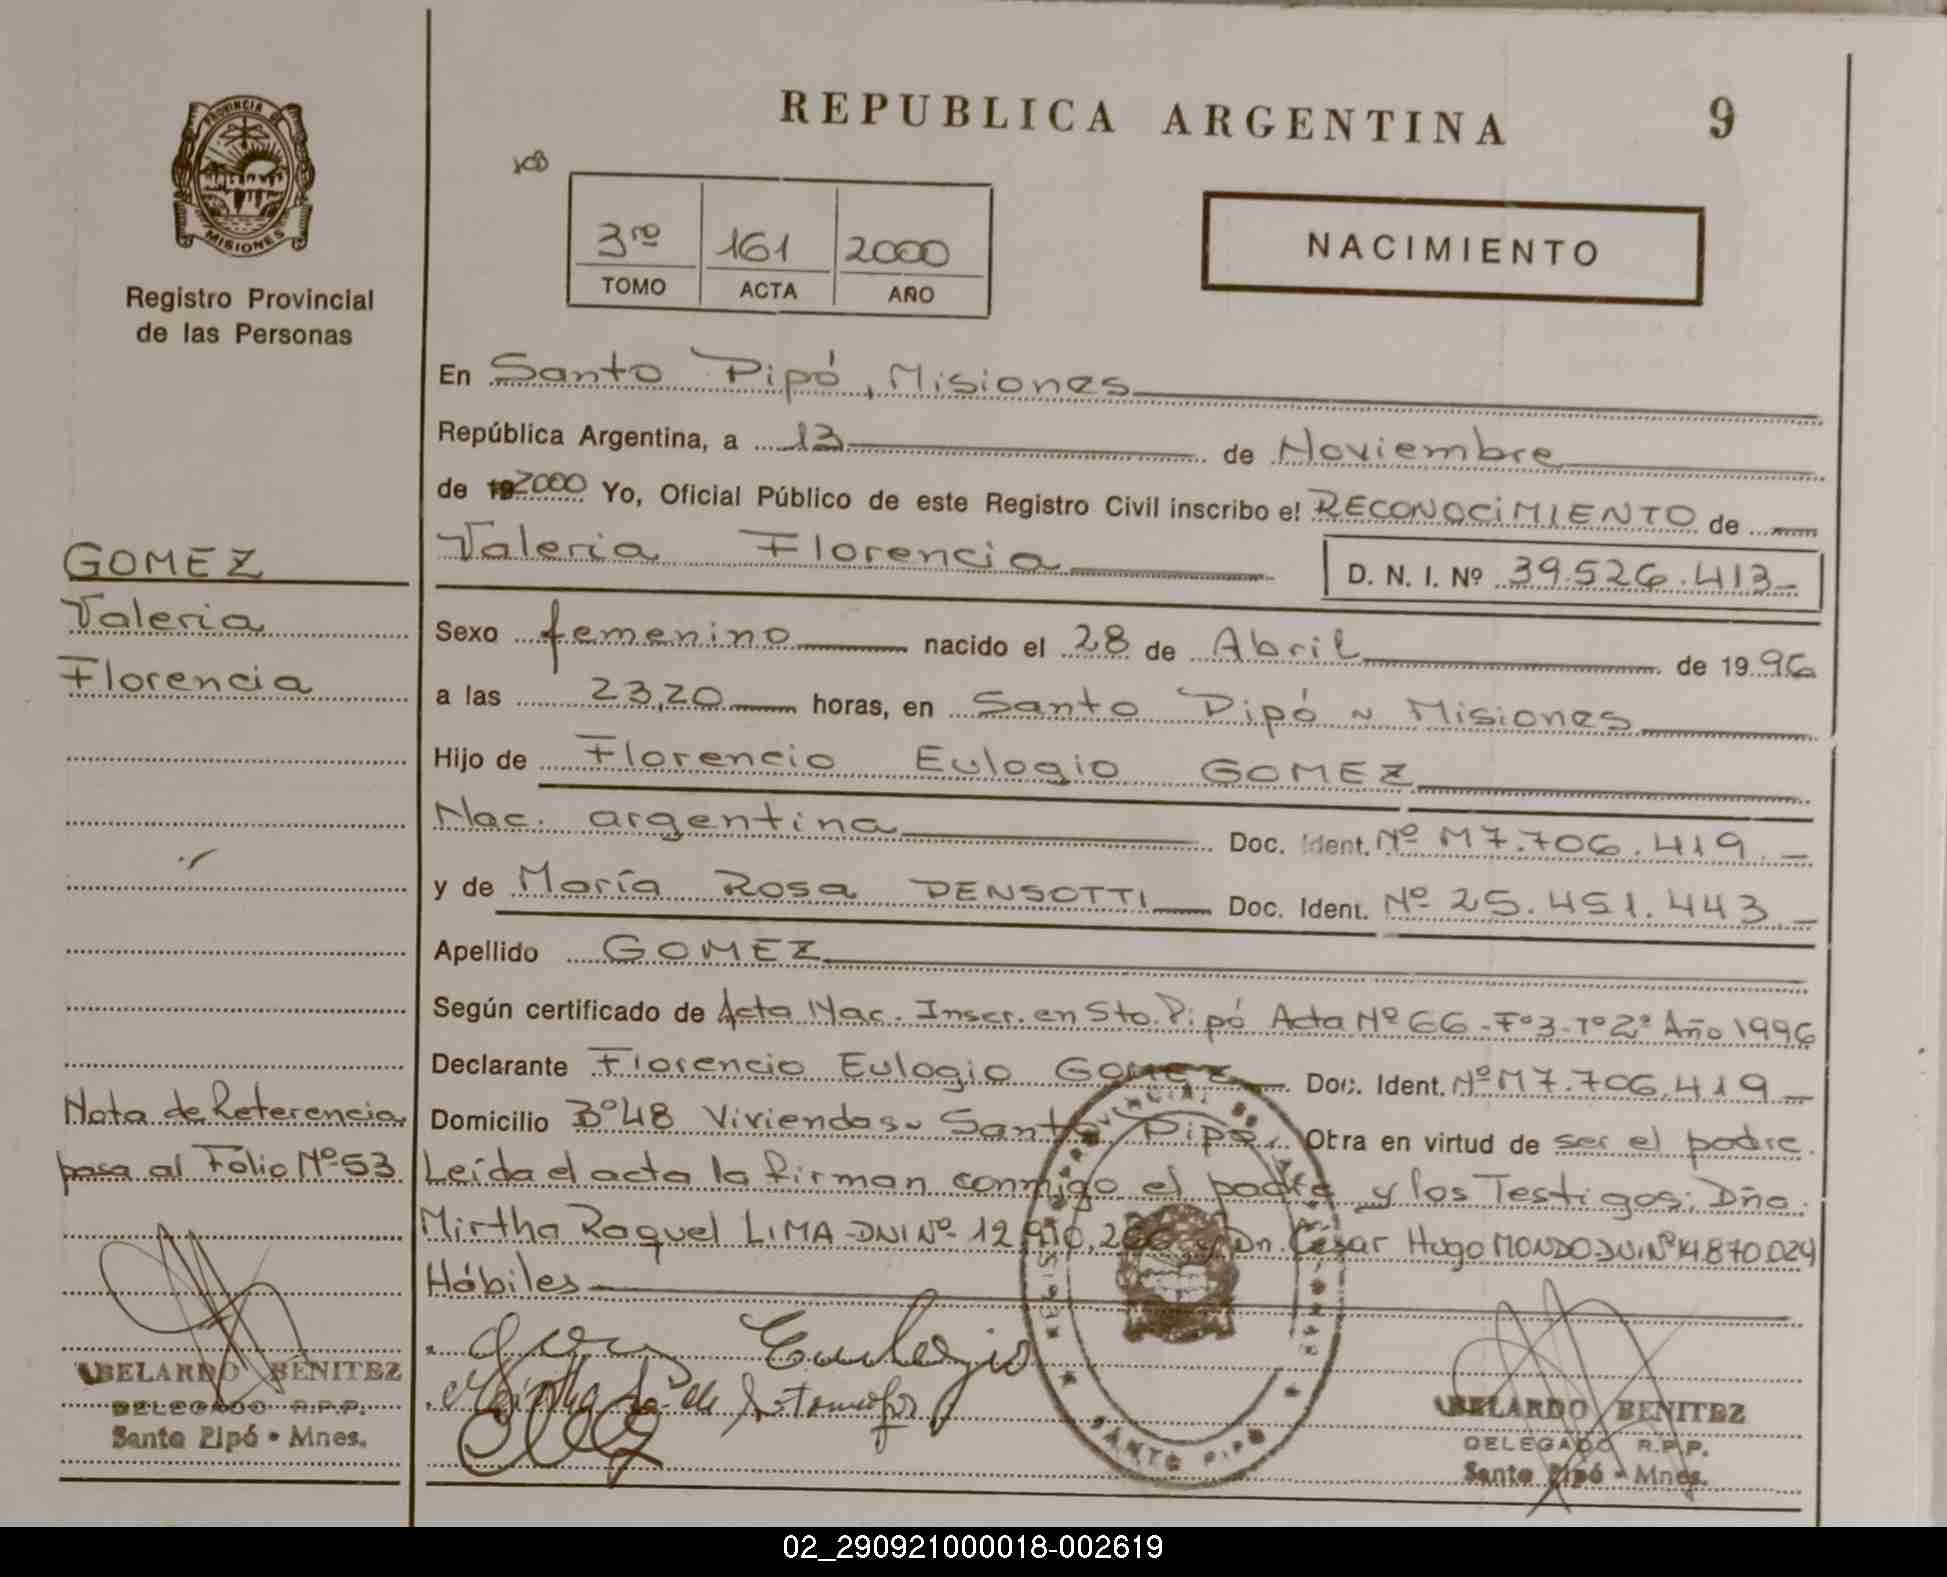 REPUBLICA ARGENTINA
9
PROVINCIA DE
MISIONES
Registro Provincial
de las Personas
3ro 161 2000
TOMO ACTA AÑO
NACIMIENTO
En Santo Pipó, Misiones
República Argentina, a 13 de Noviembre
de 192000 Yo, Oficial Público de este Registro Civil inscribo el RECONOCIMIENTO de
Valeria Florencia
D. N. I. Nº 39.526.413-
GOMEZ
Valeria
Florencia
Sexo femenino nacido el 28 de Abril de 1996
a las 23,20 horas, en Santo Pipó ~ Misiones
Hijo de Florencio Eulogio GOMEZ
Nac. argentina Doc. Ident. Nº M7.706.419.-
y de María Rosa PENSOTTI Doc. Ident. Nº 25.451.443.-
Apellido GOMEZ
Según certificado de Acta Nac. Inscr. en Sto. Pipó Acta Nº 66-Fº3-Tº2º Año 1996
Declarante Florencio Eulogio GOMEZ Doc. Ident. Nº M7.706.419-
Domicilio Bº 48 Viviendas~ Santo Pipó. Obra en virtud de ser el padre.
Leída el acta la firman conmigo el padre y los Testigos; Dña.
Mirtha Raquel LIMA-DNI Nº 12.910.2 y Dn. César Hugo MONDO DNI Nº 14.870.024
Hábiles
Nota de Referencia
pasa al Folio Nº 53
Eulogio
SANTO PIPO
ABELARDO BENITEZ
DELEGADO R.P.P.
Santo Pipó - Mnes.
ABELARDO BENITEZ
DELEGADO R.P.P.
Santo Pipó - Mnes.
02_290921000018-002619